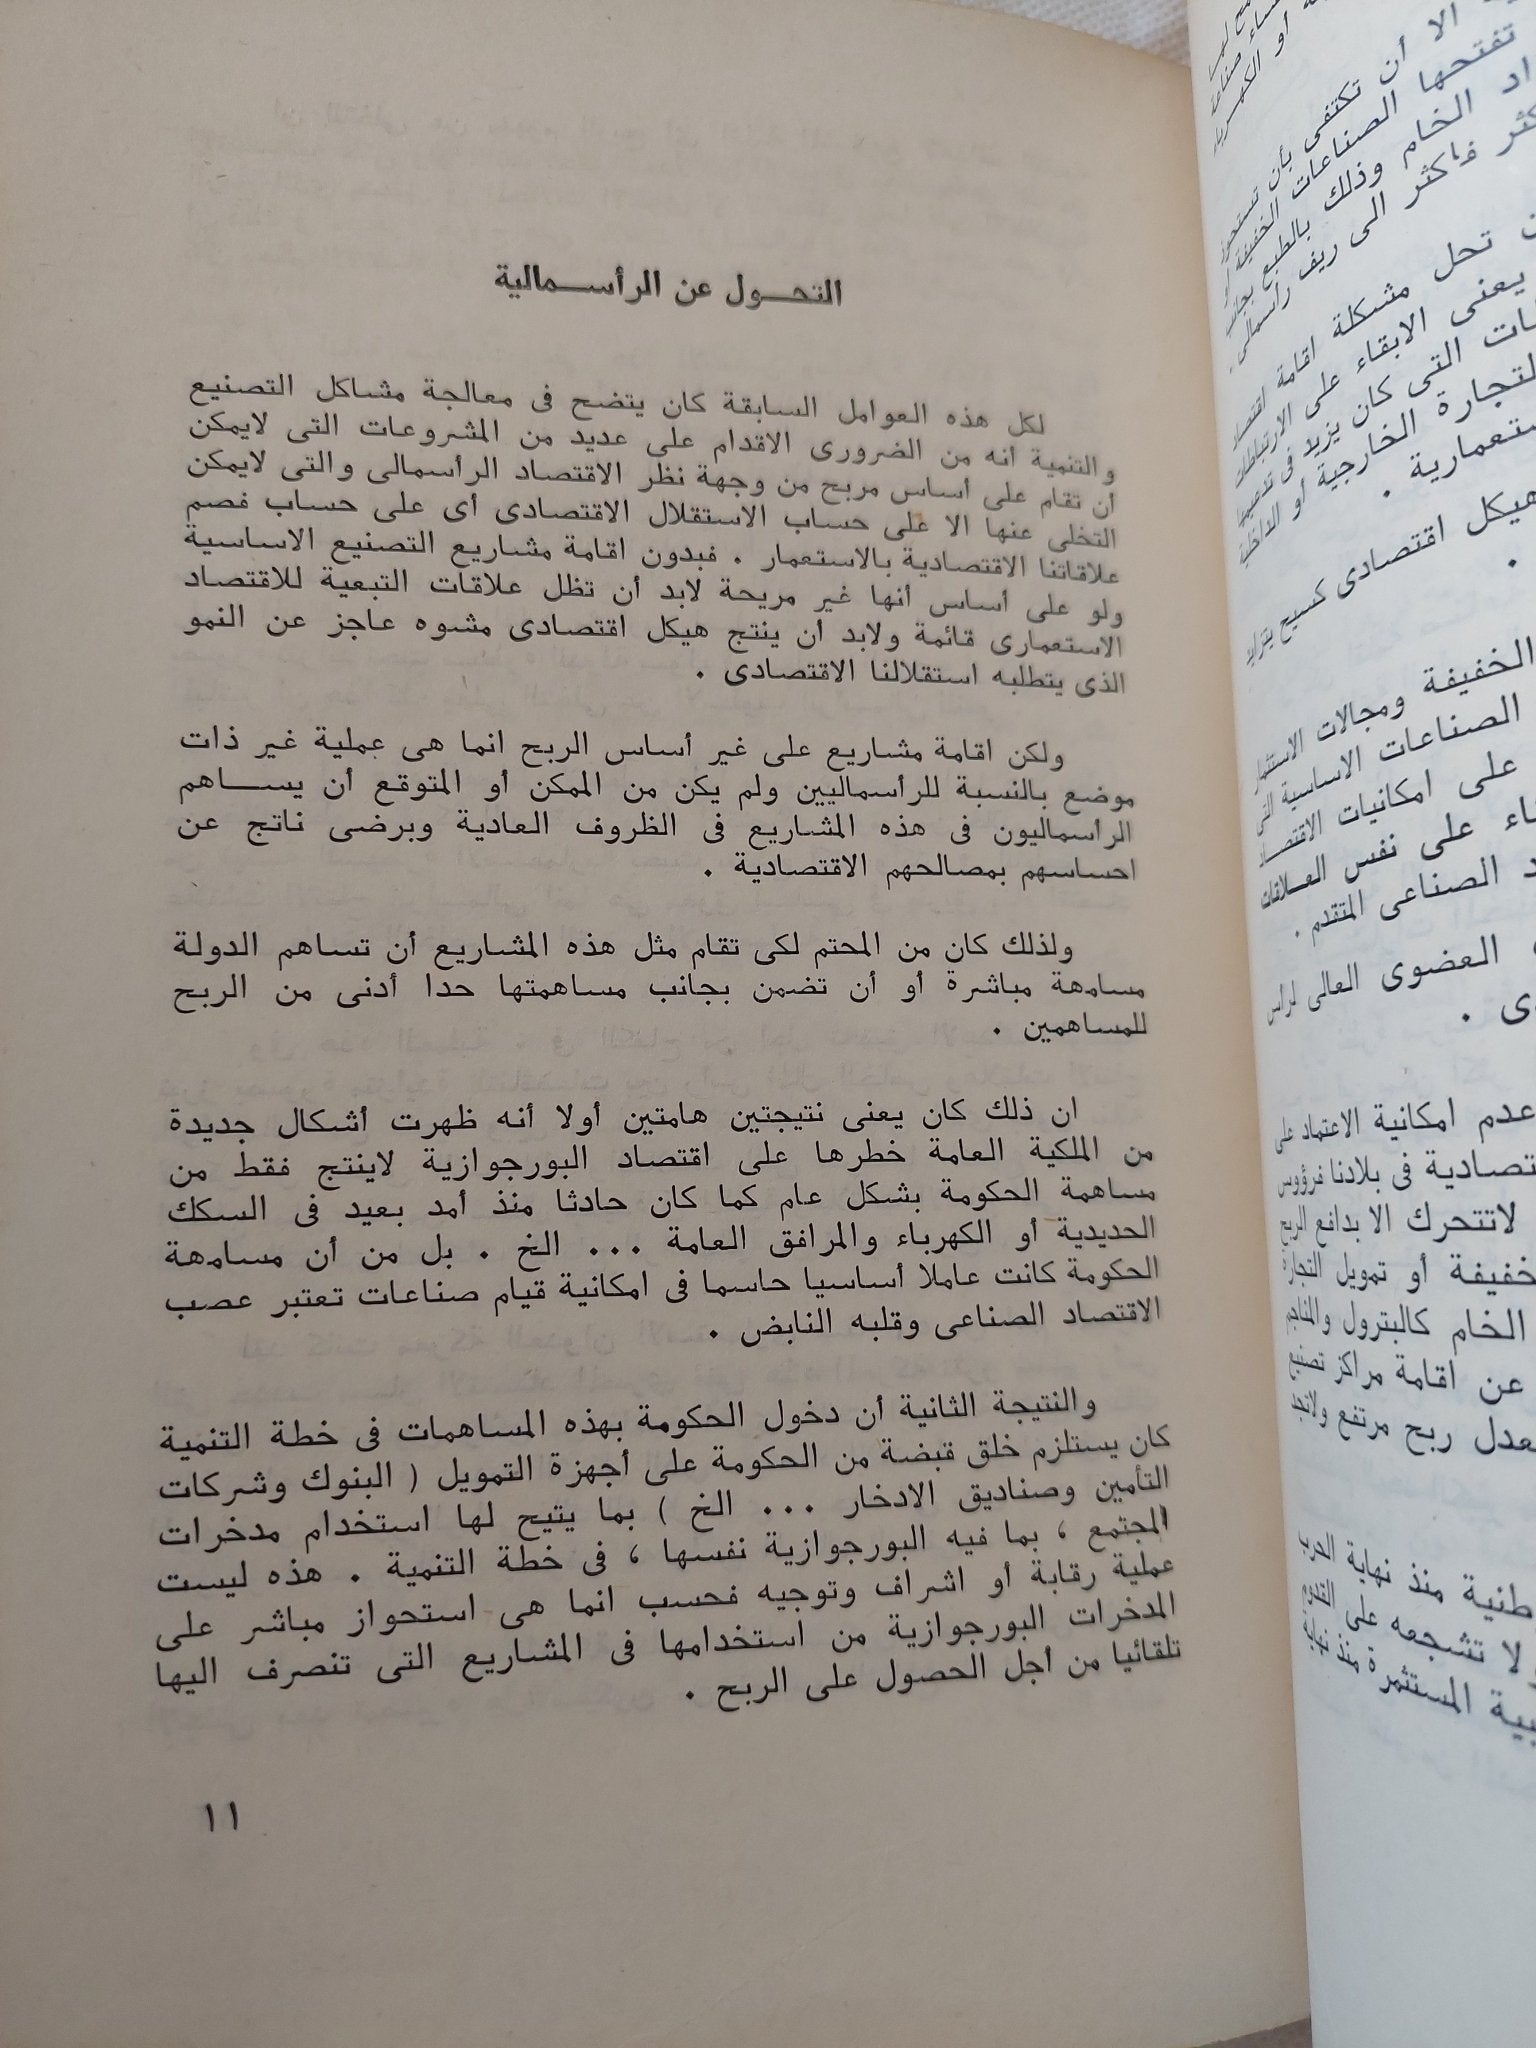 التحول عن الرأسمالية
لكل هذه العوامل السابقة كان يتضح فى معالجة مشاكل التصنيع
والتنمية أنه من الضرورى الاقدام على عديد من المشروعات التى لايمكن
أن تقام على أساس مربح من وجهة نظر الاقتصاد الرأسمالى والتى لايمكن
التخلى عنها الا على حساب الاستقلال الاقتصادى أى على حساب فصم
علاقاتنا الاقتصادية بالاستعمار . فبدون اقامة مشاريع التصنيع الاساسية
ولو على أساس أنها غير مريحة لابد أن تظل علاقات التبعية للاقتصاد
الاستعمارى قائمة ولابد أن ينتج هيكل اقتصادى مشوه عاجز عن النمو
الذى يتطلبه استقلالنا الاقتصادى .
ولكن اقامة مشاريع على غير أساس الربح انما هى عملية غير ذات
موضع بالنسبة للرأسماليين ولم يكن من الممكن أو المتوقع أن يساهم
الرأسماليون فى هذه المشاريع فى الظروف العادية وبرضى ناتج عن
احساسهم بمصالحهم الاقتصادية .
ولذلك كان من المحتم لكى تقام مثل هذه المشاريع أن تساهم الدولة
مساهمة مباشرة أو أن تضمن بجانب مساهمتها حدا أدنى من الربح
للمساهمين .
ان ذلك كان يعنى نتيجتين هامتين أولا أنه ظهرت أشكال جديدة
من الملكية العامة خطرها على اقتصاد البورجوازية لاينتج فقط من
مساهمة الحكومة بشكل عام كما كان حادثا منذ أمد بعيد فى السكك
الحديدية أو الكهرباء والمرافق العامة ... الخ . بل من أن مساهمة
الحكومة كانت عاملا أساسيا حاسما فى امكانية قيام صناعات تعتبر عصب
الاقتصاد الصناعى وقلبه النابض .
والنتيجة الثانية أن دخول الحكومة بهذه المساهمات فى خطة التنمية
كان يستلزم خلق قبضة من الحكومة على أجهزة التمويل ( البنوك وشركات
التأمين وصناديق الادخار ... الخ ) بما يتيح لها استخدام مدخرات
المجتمع ، بما فيه البورجوازية نفسها ، فى خطة التنمية . هذه ليست
عملية رقابة أو اشراف وتوجيه فحسب انما هى استحواز مباشر على
المدخرات البورجوازية من استخدامها فى المشاريع التى تنصرف اليها
تلقائيا من أجل الحصول على الربح .
١١
الا أن تكتفى بأن تستحوذ
تفتحها الصناعات الخفيفة أو
الخام وذلك بالطبع بجانب
فاكثر الى ريف رأسمالى .
تحل مشكلة اقامة اقتصاد
يعنى الابقاء على الارتباطات
التى كان يزيد فى تدعيمها
التجارة الخارجية أو الداخلية
هيكل اقتصادى كسيح يتزايد
الخفيفة ومجالات الاستثمار
الصناعات الاساسية التى
على امكانيات الاقتصاد
على نفس العلاقات
الصناعى المتقدم .
العضوى العالى لرأس
عدم امكانية الاعتماد على
فى بلادنا فرؤوس
لاتتحرك الا بدافع الربح
أو تمويل التجارة
الخام كالبترول والمناجم
عن اقامة مراكز تصنيع
ربح مرتفع ولاتجد
منذ نهاية الحرب
لا تشجعه على القدوم
المستثمرة منذ نهاية